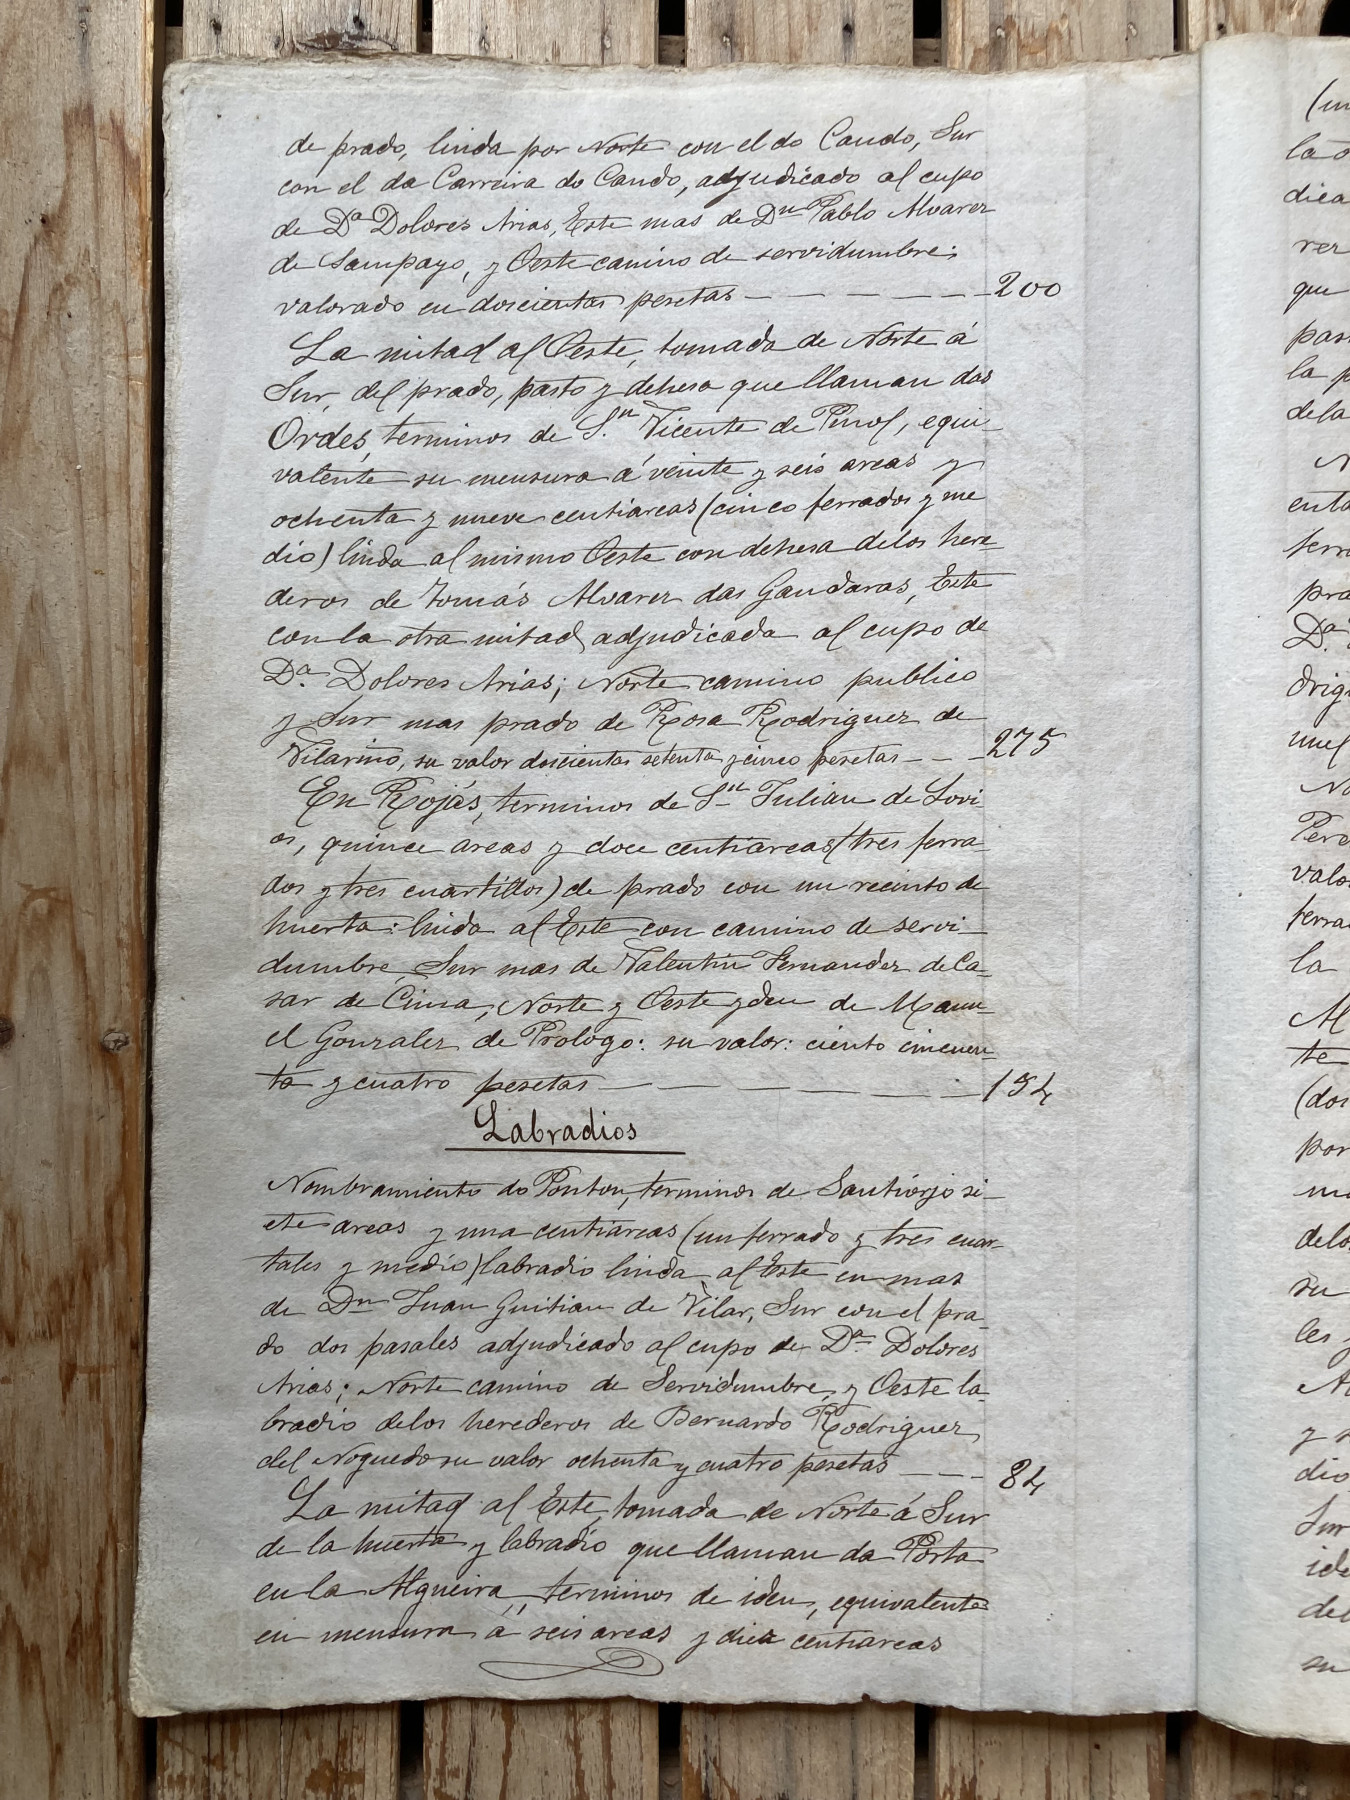 de prado, linda por Norte con el do Caudo, Sur
con el da Carreira do Caudo, adjudicado al cupo
de Dª Dolores Arias, Este mas de Dn Pablo Alvarez
de Sampayo, y Oeste camino de servidumbre:
valorado en doscientas pesetas — — — — — — 200
La mitad al Oeste, tomada de Norte á
Sur, del prado, pasto y dehesa que llaman das
Ordes, terminos de S.n Vicente de Pinol, equi-
valente su mensura á veinte y seis areas y
ochenta y nueve centiareas (cinco ferrados y me
dio) linda al mismo Oeste con dehesa delos here-
deros de Tomás Alvarez das Gandaras, Este
con la otra mitad adjudicada al cupo de
D.ª Dolores Arias; Norte camino publico
y Sur mas prado de Rosa Rodriguez de
Vilariño, su valor doscientas setenta y cinco pesetas — — — 275
En Rojás, terminos de Sn Julian de Lovi-
os, quince areas y doce centiareas (tres ferra-
dos y tres cuartillos) de prado con un recinto de
huerta: linda al Este con camino de servi-
dumbre, Sur mas de Valentin Fernandez de Ca-
sar de Cima, Norte y Oeste yden de Manu-
el Gonzalez de Prologo: su valor: ciento cincuen-
ta y cuatro pesetas — — — — — — 154
Labradios
Nombramiento do Ponton, terminos de Santiorjo si-
ete areas y una centiareas (un ferrado y tres cuar-
tales y medio) labradio linda al Este en mas
de Dn Juan Guitian de Vilar, Sur con el pra-
do dos pasales adjudicado al cupo de Dª Dolores
Arias; Norte camino de Servidumbre, y Oeste la-
bradio delos herederos de Bernardo Rodriguez
del Noguedo su valor ochenta y cuatro pesetas — — — 84
La mitad al Este, tomada de Norte á Sur
de la huerta y labradio que llaman da Porta
en la Algueira, terminos de iden, equivalente
en mensura á seis areas y diez centiareas